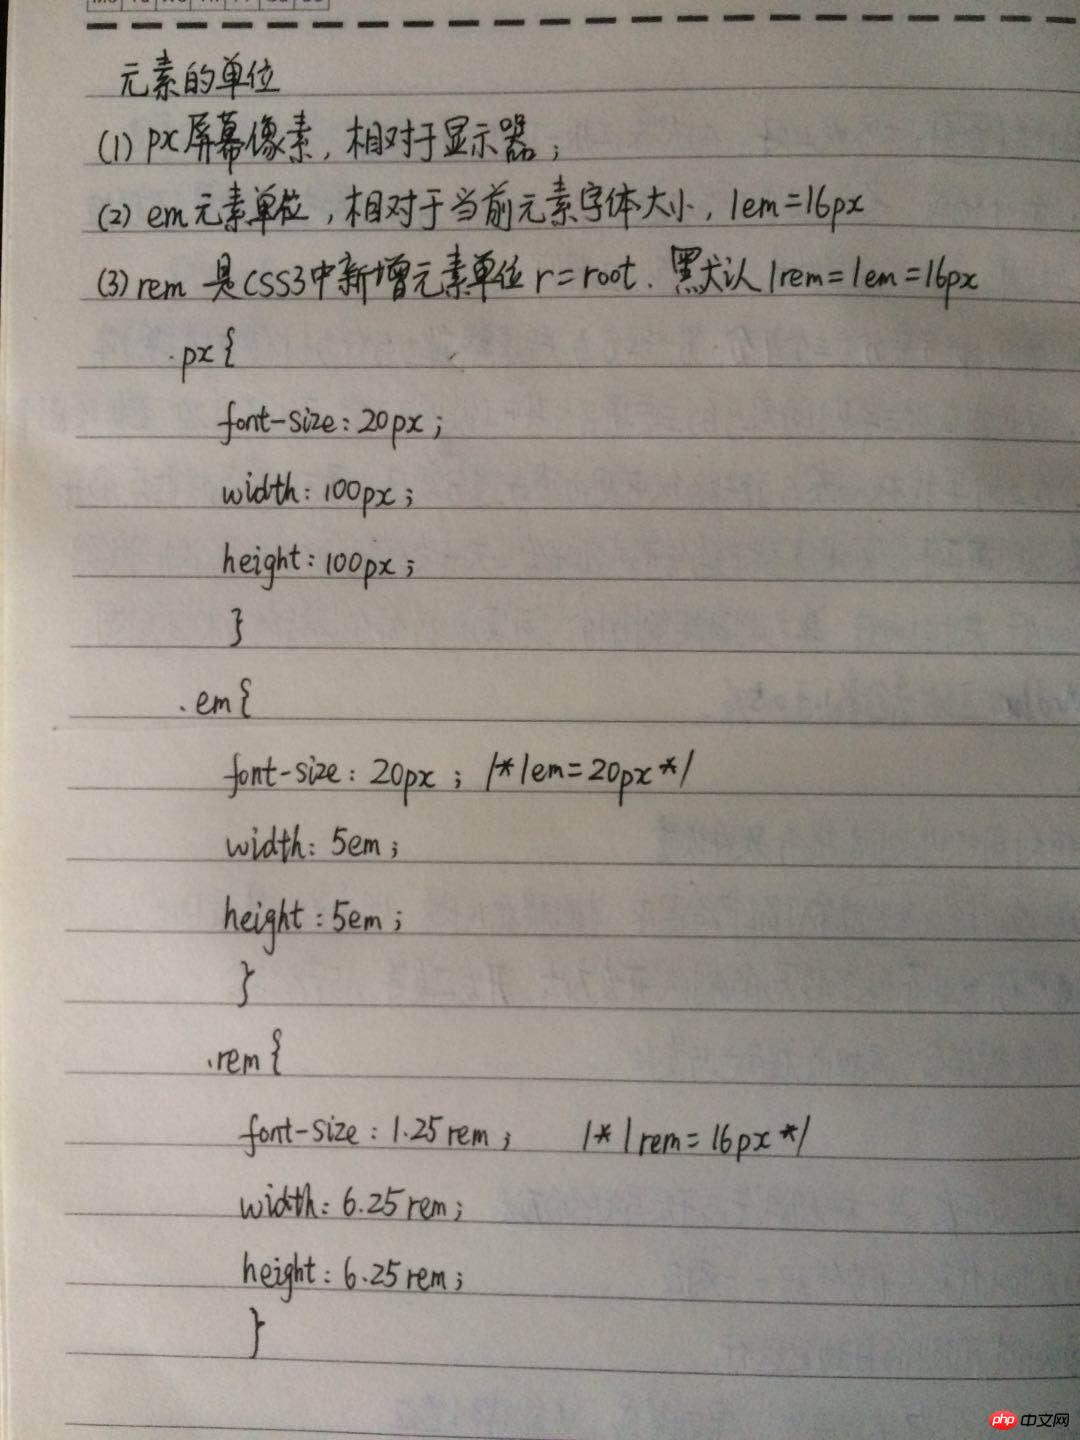 元素的单位
(1) px屏幕像素，相对于显示器；
(2) em元素单位，相对于当前元素字体大小，1em=16px
(3) rem 是CSS3中新增元素单位 r=root. 默认 1rem=1em=16px
.px{
font-size: 20px;
width: 100px;
height: 100px;
}
.em{
font-size: 20px; /*1em=20px*/
width: 5em;
height: 5em;
}
.rem{
font-size: 1.25rem; /*1rem=16px*/
width: 6.25rem;
height: 6.25rem;
}
php 中文网